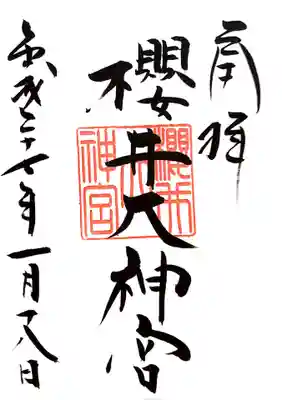 奉拝
櫻井大神宮
平成二十七年一月十八日
櫻井大神宮